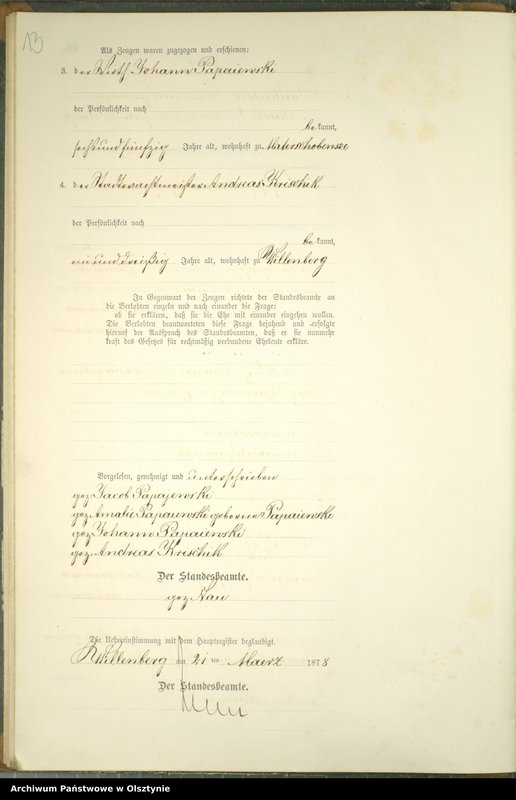 13
Als Zeugen waren zugezogen und erschienen:
3. der Wirth Johann Papaiewski
der Persönlichkeit nach
bekannt,
sechsundfünfzig Jahre alt, wohnhaft zu Materschobensee
4. der Stadtwachtmeister Andreas Krischik
der Persönlichkeit nach
bekannt,
einunddreißig Jahre alt, wohnhaft zu Willenberg
In Gegenwart der Zeugen richtete der Standesbeamte an
die Verlobten einzeln und nach einander die Frage:
ob sie erklären, daß sie die Ehe mit einander eingehen wollen.
Die Verlobten beantworteten diese Frage bejahend und erfolgte
hierauf der Ausspruch des Standesbeamten, daß er sie nunmehr
kraft des Gesetzes für rechtmäßig verbundene Eheleute erkläre.
Vorgelesen, genehmigt und unterschrieben
gez Jacob Papajewski
gez Amalie Papaiewski geborne Papaiewski
gez Johann Papaiewski
gez Andreas Krischik
Der Standesbeamte.
gez Nau
Die Uebereinstimmung mit dem Hauptregister beglaubigt.
Willenberg am 21 ten Maerz 1878
Der Standesbeamte.
Archiwum Państwowe w Olsztynie